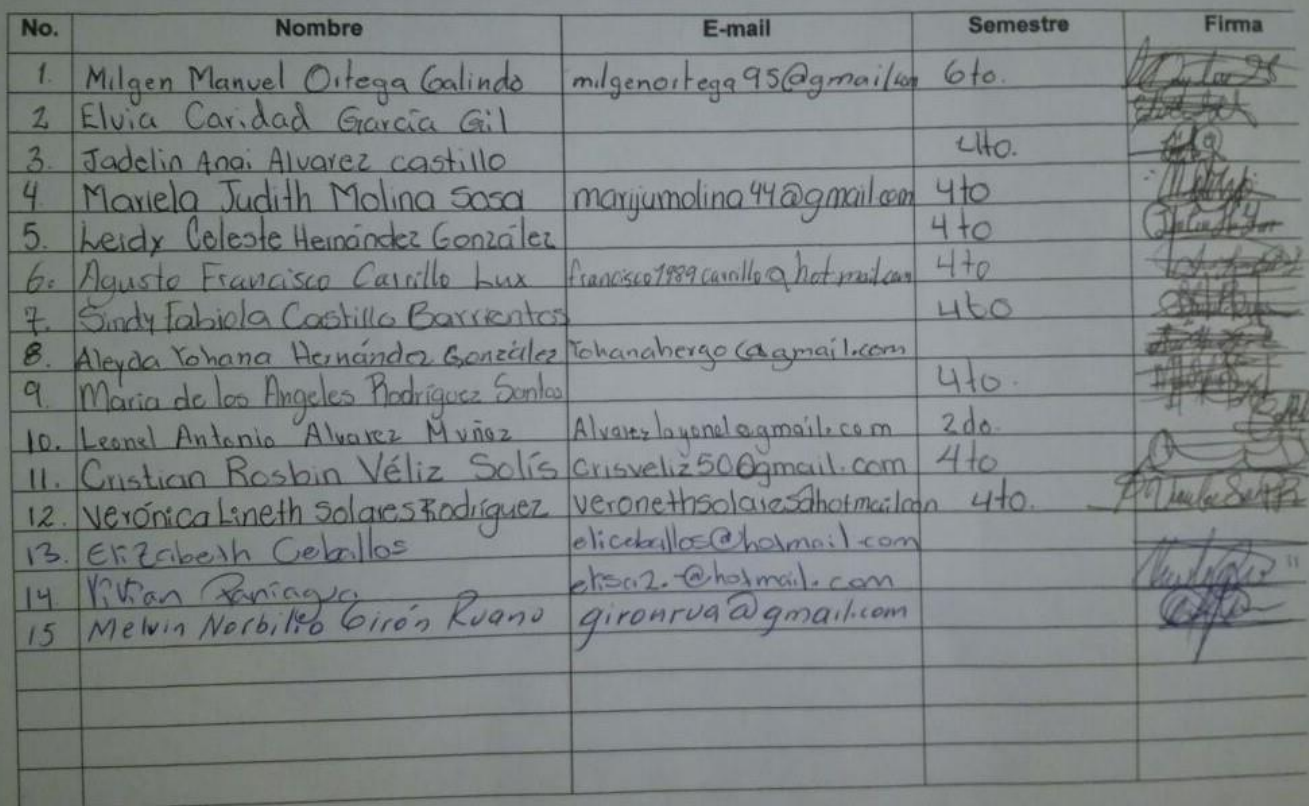 No. Nombre E-mail Semestre Firma
1. Milgen Manuel Ortega Galindo milgenortega95@gmail.com 6to.
2 Elvia Caridad García Gil
3. Jadelin Anai Alvarez castillo 4to.
4 Mariela Judith Molina Sosa marijumolina44@gmail.com 4to
5. Leidy Celeste Hernández González 4to
6. Agusto Francisco Carrillo Lux francisco1989carrillo@hotmail.com 4to
7. Sindy Fabiola Castillo Barrientos 4to
8. Aleyda Yohana Hernández González Yohanahergo@gmail.com
9. Maria de los Angeles Rodríguez Santos 4to.
10. Leonel Antonio Alvarez Muñoz Alvarezlayonel@gmail.com 2do.
11. Cristian Rosbin Véliz Solís Crisveliz50@gmail.com 4to
12. Verónica Lineth Solares Rodríguez veronethsolares@hotmail.com 4to.
13. Elizabeth Ceballos eliceballos@hotmail.com
14 Vivian Paniagua elisa2.@hotmail.com
15 Melvin Norbilio Girón Ruano gironrua@gmail.com